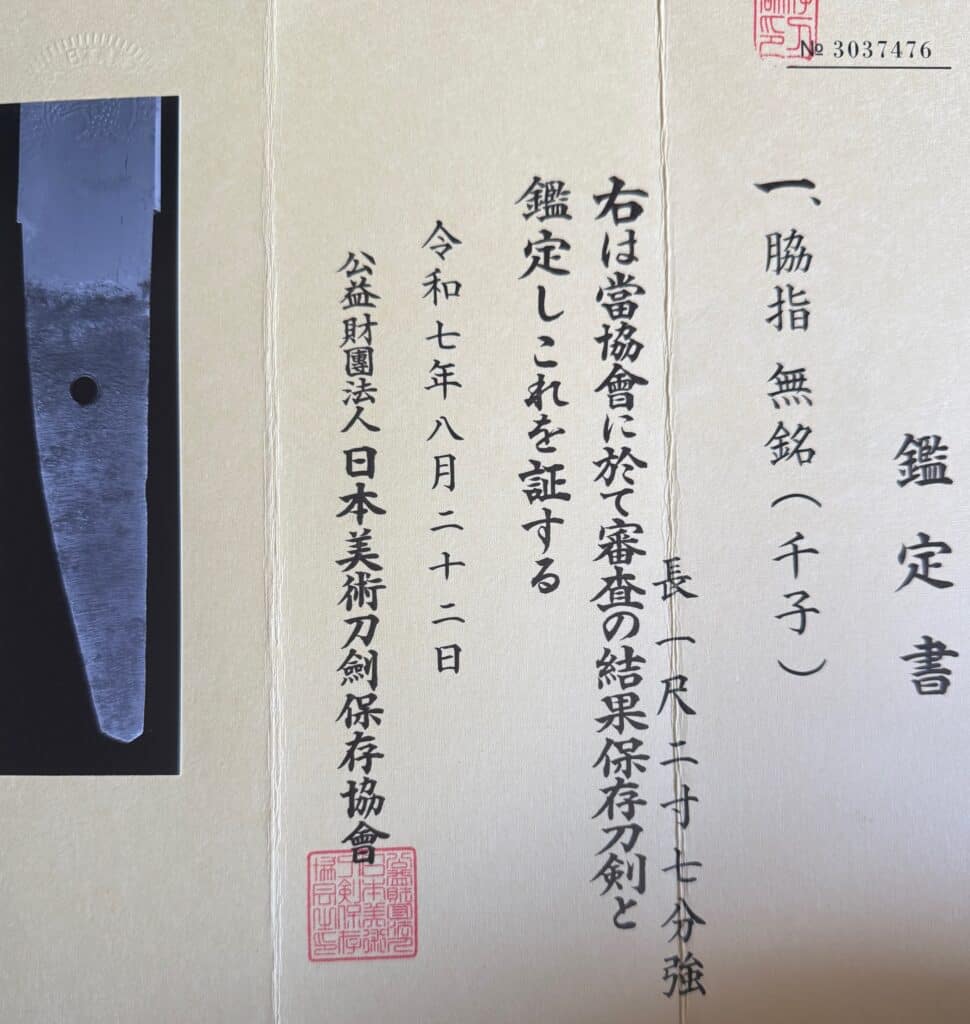 № 3037476
鑑定書
一、脇指 無銘（千子）
長 一尺二寸七分強
右は當協會に於て審査の結果保存刀剣と
鑑定しこれを証する
令和七年八月二十二日
公益財團法人日本美術刀劍保存協會